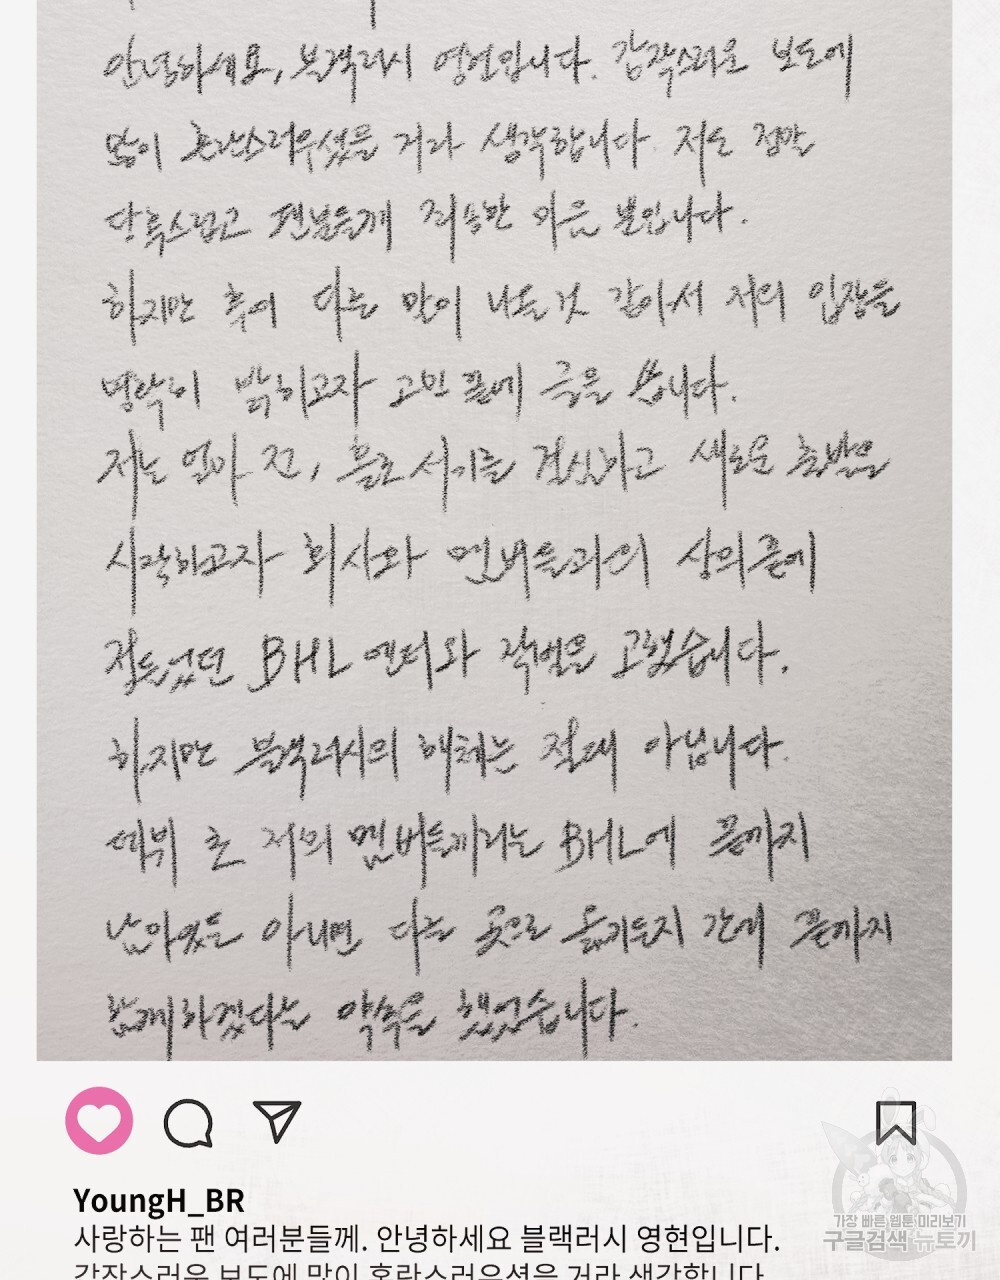 안녕하세요, 블랙러시 영현입니다. 갑작스러운 보도에
많이 혼란스러우셨을 거라 생각합니다. 저도 정말
당혹스럽고 팬분들께 죄송한 마음 뿐입니다.
하지만 후에 다른 말이 나올 것 같아서 저의 입장을
명확히 밝히고자 고민 끝에 글을 씁니다.
저는 얼마 전, 홀로서기를 결심하고 새로운 출발을
시작하고자 회사와 멤버들과의 상의 끝에
잘 되었던 BHL 엔터와 작별을 고했습니다.
하지만 블랙러시의 해체는 절대 아닙니다.
데뷔 초 저의 멤버들끼리는 BHL에 끝까지
남아있든 아니면 다른 곳으로 옮기든지 간에 끝까지
함께하겠다는 약속을 했었습니다.
YoungH_BR
사랑하는 팬 여러분들께. 안녕하세요 블랙러시 영현입니다.
갑작스러운 보도에 많이 혼란스러우셨을 거라 생각합니다.
가장 빠른 웹툰 미리보기
구글검색 뉴토끼